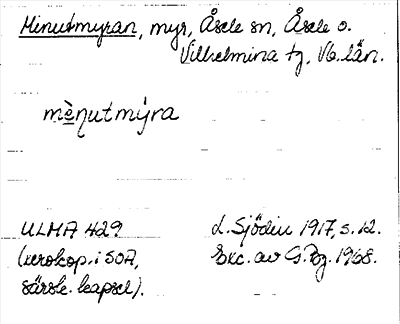 Minutmyran, myr, Åsele sn, Åsele o.
Vilhelmina tg, Vb. län.
mènutmýra
ULMA 429
(xerokop. i SOA,
särsk. kapsel).
L. Sjödin 1917, s. 12.
Exc. av G. Bg. 1968.